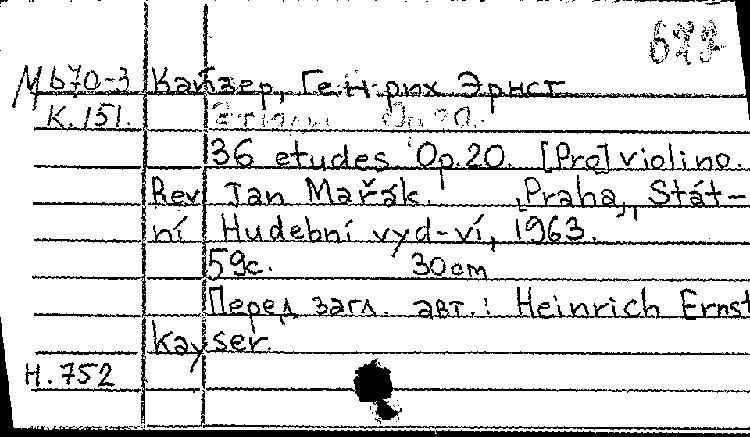 М670-3 Кайзер, Генрих Эрнст
К.151.
36 etudes Op.20. [Pro] violino.
Rev Jan Mařák. Praha, Stát-
ní Hudební vyd-ví, 1963.
59с. 30cm
Перед загл. авт.: Heinrich Ernst
Kayser.
Н.752